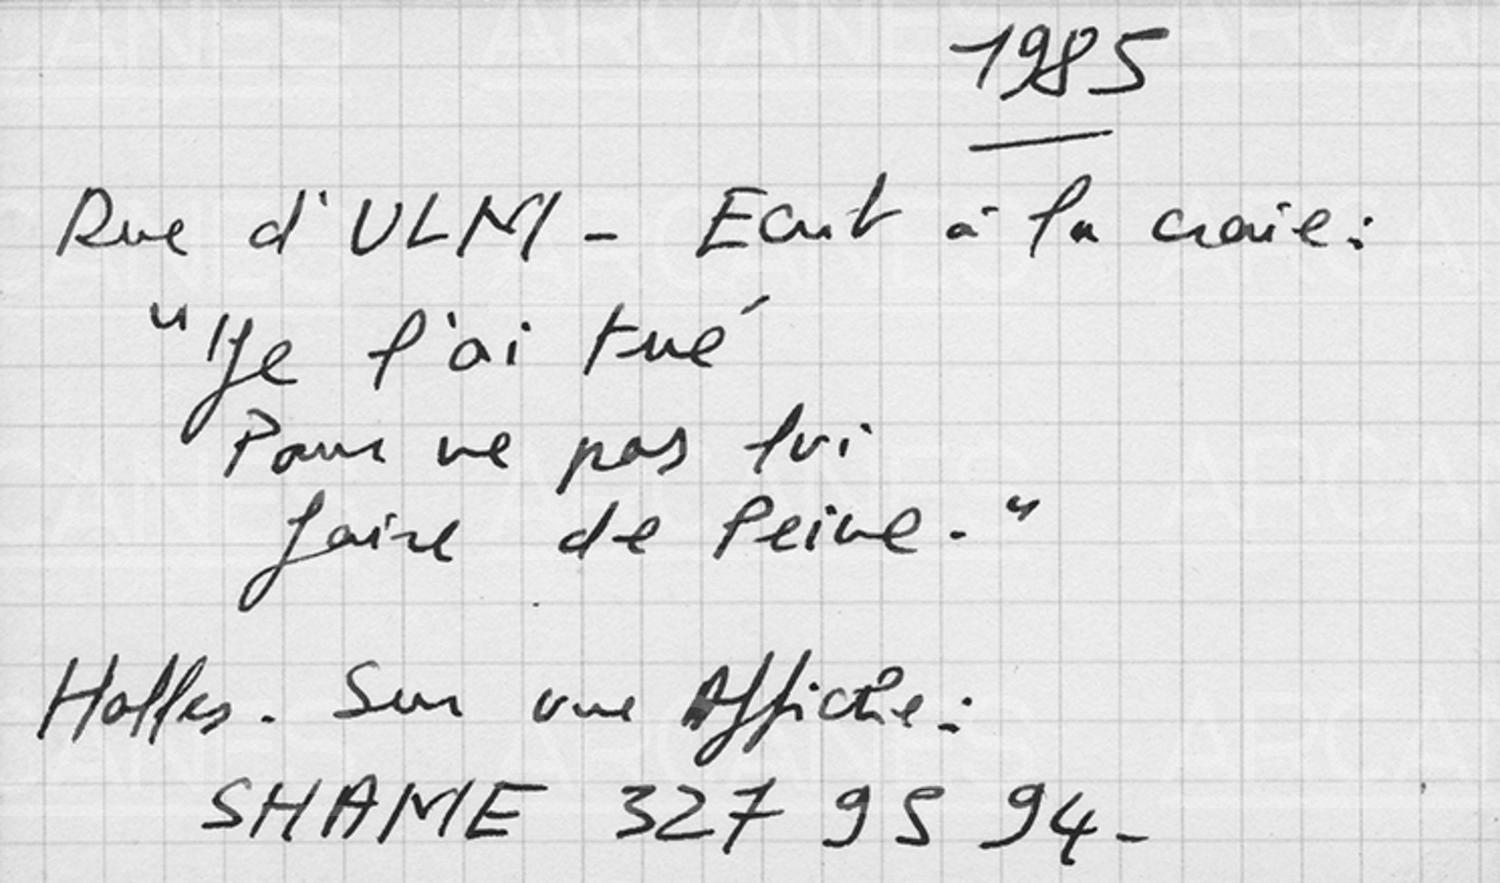 1985
Rue d'ULM - Ecrit à la craie :
"Je l'ai tué
Pour ne pas lui
faire de Peine."
Halles. Sur une Affiche :
SHAME 327 95 94 -